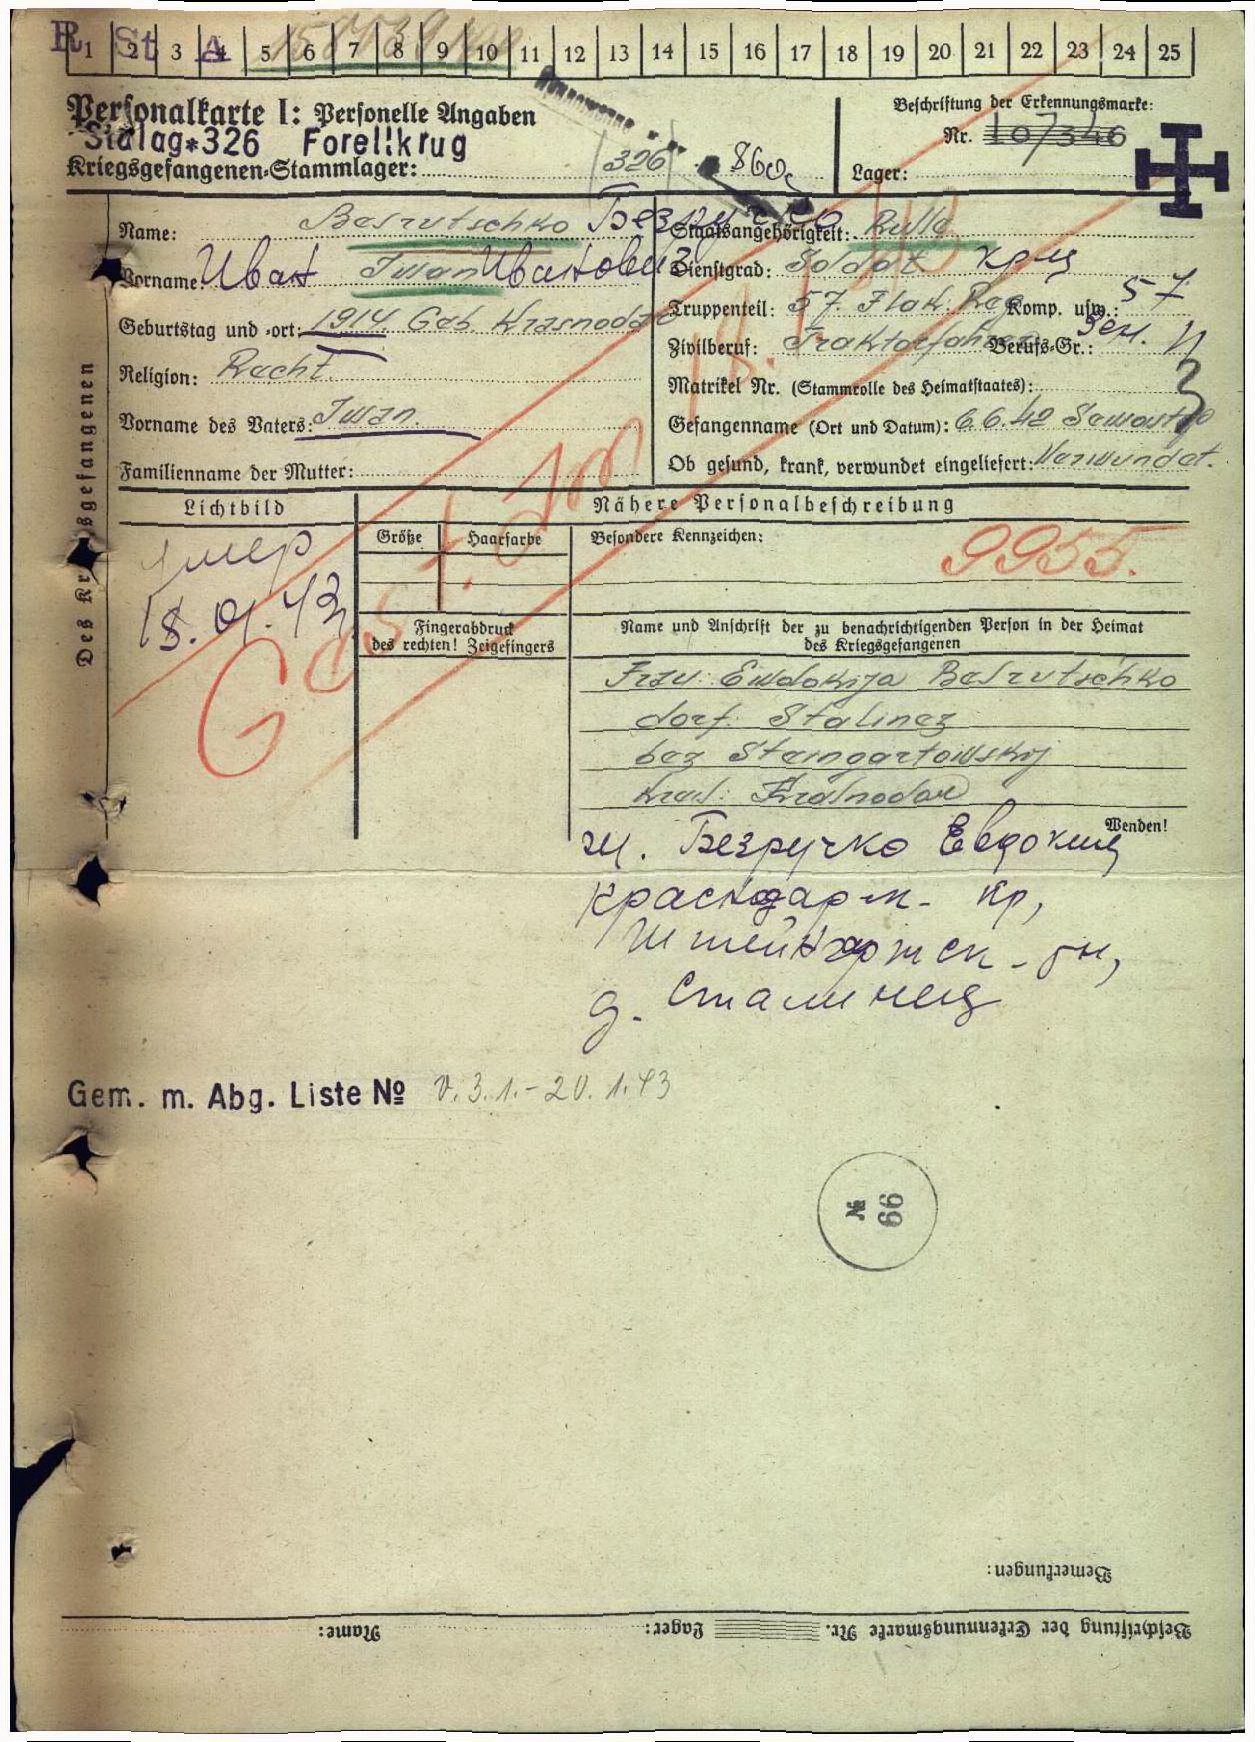 R St A
1 2 3 4 5 6 7 8 9 10 11 12 13 14 15 16 17 18 19 20 21 22 23 24 25
Personalkarte I: Personelle Angaben
Beschriftung der Erkennungsmarke:
Stalag*326 Forellkrug
Nr. 107346
Kriegsgefangenen-Stammlager: 326 860
Lager:
Name: Besrutschko Безручко
Staatsangehörigkeit: Russe
Vorname: Иван Iwan Иванович
Dienstgrad: Soldat крц
Geburtstag und -ort: 1914. Geb. Krasnodar
Truppenteil: 57. Flak. Reg. Komp. usw.: 57
Zivilberuf: Traktorfahrer Berufs-Gr.:
Religion: Rucht.
Matrikel Nr. (Stammrolle des Heimatstaates):
Vorname des Vaters: Iwan.
Gefangenname (Ort und Datum): 6.6.42 Sewastop
Familienname der Mutter:
Ob gesund, krank, verwundet eingeliefert: Verwundet.
Des Kr sgefangenen
Lichtbild
Nähere Personalbeschreibung
Größe
Haarfarbe
Besondere Kennzeichen:
9955.
умер
18.01.43
Gest. am
Fingerabdruck
des rechten! Zeigefingers
Name und Anschrift der zu benachrichtigenden Person in der Heimat
des Kriegsgefangenen
Frau: Ewdokija Besrutschko
dorf: Stalinez
bez Steingartowskij
Kras: Krasnodar
Wenden!
ж. Безручко Евдокия
Краснодарск. кр,
Штейнгартск. рн,
д. Сталинец
Gem. m. Abg. Liste № v. 3.1.-20.1.43
№ 66
Bemerkungen:
Beschriftung der Erkennungsmarke Nr. Lager: Name: